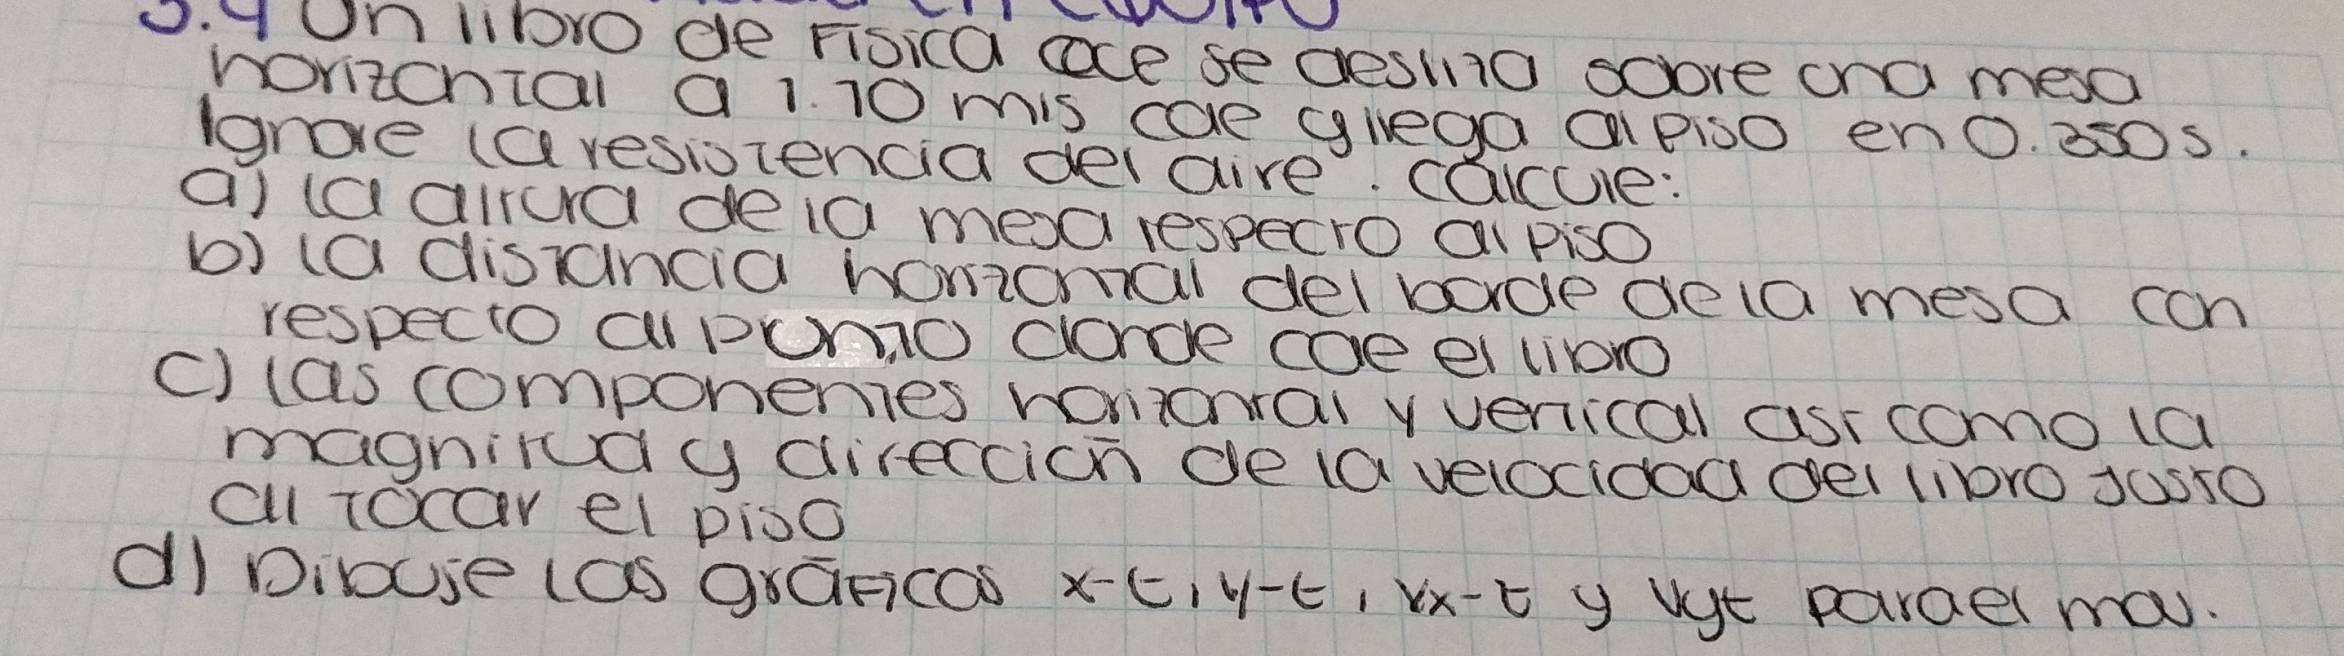 3.4 Un libro de Física que se desliza sobre una mesa
horizontal a 1.10 m/s cae y llega al piso en 0.350 s.
Ignore la resistencia del aire. Calcule:
a) la altura de la mesa respecto al piso
b) la distancia horizontal del borde de la mesa con
respecto al punto donde cae el libro
c) las componentes horizontal y vertical así como la
magnitud y dirección de la velocidad del libro justo
al tocar el piso
d) Dibuje las gráficas x-t, y-t, vx-t y vyt para el mov.